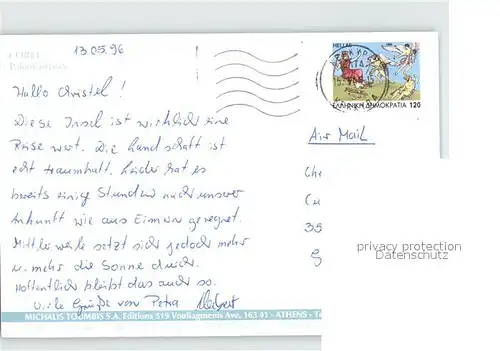 CORFU
13 05. 96
HELLAS
ΕΛΛΗΝΙΚΗ ΔΗΜΟΚΡΑΤΙΑ 120
Air Mail
Hallo Christel!
Diese Insel ist wirklich eine
Reise wert. Die Landschaft ist
echt traumhaft. Leider hat es
bereits einige Stunden nach unserer
Ankunft wie aus Eimern geregnet.
Mittlerweile setzt sich jedoch mehr
u. mehr die Sonne durch.
Hoffentlich bleibt das auch so.
Viele Grüße von Petra
Che
Cu
35
G
privacy protection
Datenschutz
MICHALIS TOUMBIS S.A. Editions 519 Vouliagmenis Ave. 163 41 - ATHENS - Te